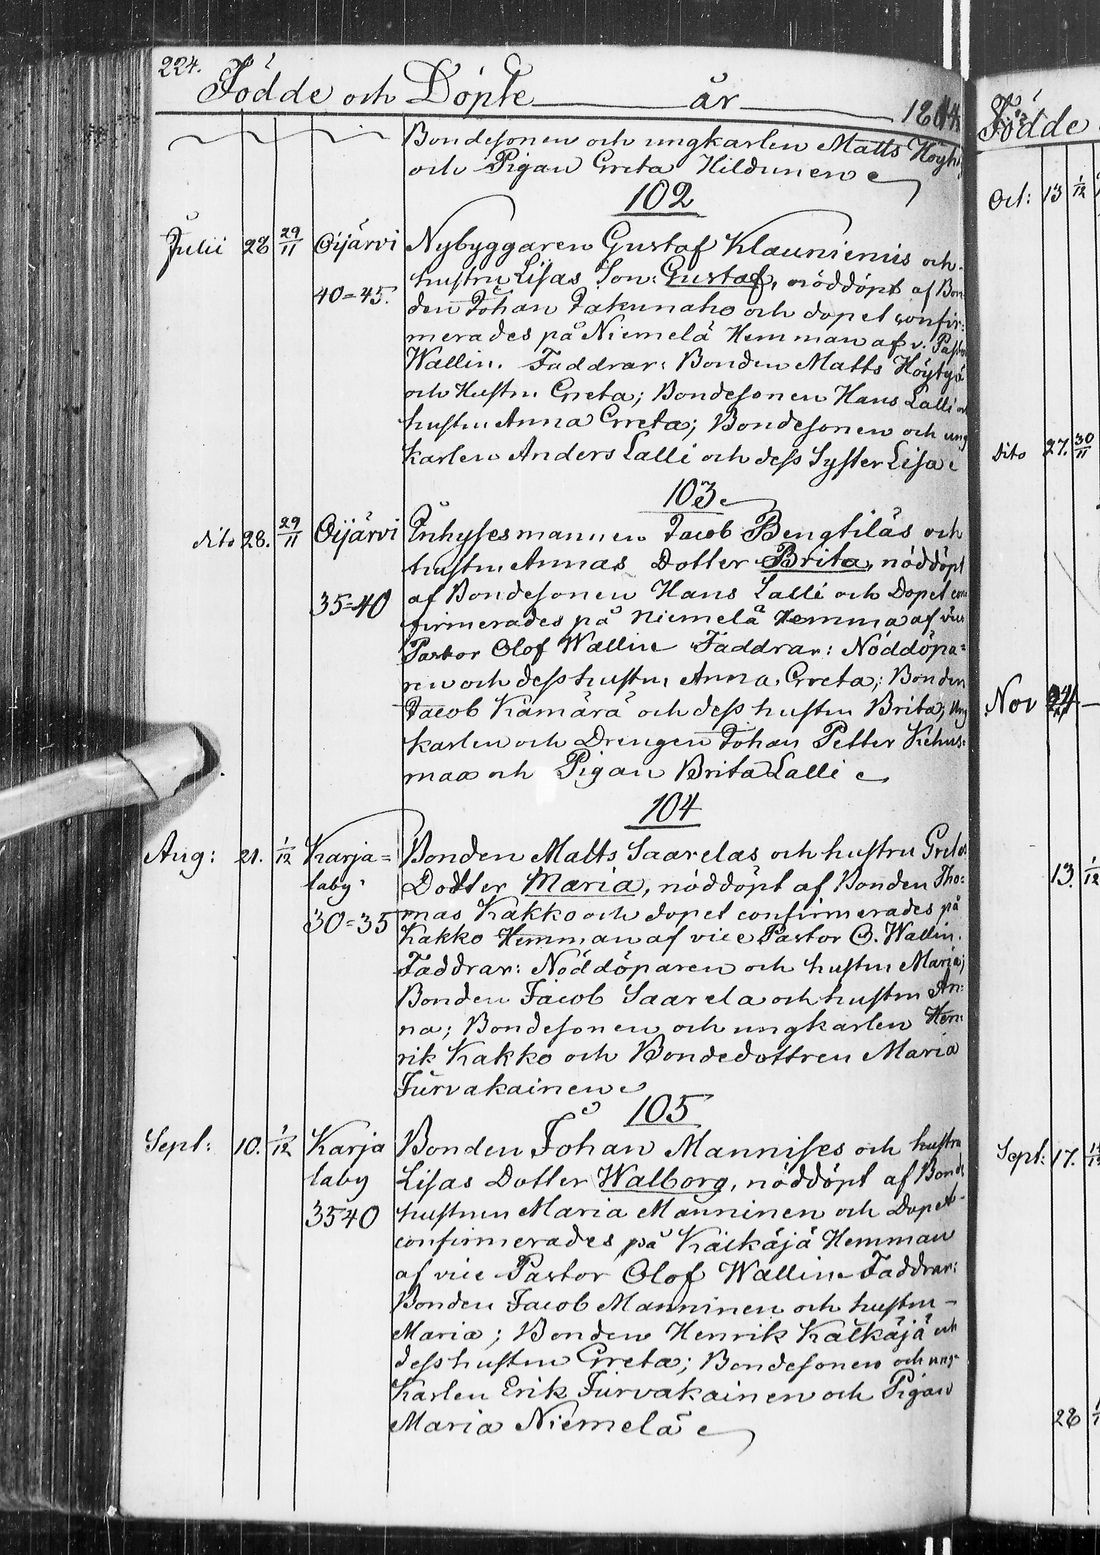 224.
Födde och Döpte år 1844
Bondesonen och ungkarlen Matts
och Pigan Greta Hildunen
102
Julii 28 29/11 Oijärvi Nybyggaren Gustaf Klauniemis och
hustru Lisas Son: Gustaf, nöddöpt af Bon
40=45. den Johan Jakunaho och dopet confir:
merades på Niemelä Hemman af v: Pastor
Wallin. Faddrar: Bonden Matts Höytyä
och Hustru Greta; Bondesonen Hans Lalli och
hustru Anna Greta; Bondesonen och ung
karlen Anders Lalli och dess Syster Lisa
103
dito 28. 29/11 Oijärvi Inhysesmannen Jacob Bengtiläs och
hustru Annas Dotter Brita, nöddöpt
af Bondesonen Hans Lalli och Dopet con
35=40 firmerades på Niemelä Hemma af vice
Pastor Olof Wallin Faddrar: Nöddöpa=
ren och dess hustru Anna Greta; Bonden
Jacob Kämärä och dess hustru Brita; Ung
karlen och Drengen Johan Petter Kehus:
maa och Pigan Brita Lalli
104
Aug: 21. 1/12 Karja= Bonden Matts Saarelas och hustru Gretas
laby Dotter Maria, nöddöpt af Bonden Tho:
30=35 mas Kakko och dopet confirmerades på
Kakko Hemman af vice Pastor O. Wallin.
Faddrar: Nöddöparen och hustru Maria;
Bonden Jacob Saarela och hustru An:
na; Bondesonen och ungkarlen Hen:
rik Kakko och Bondedottren Maria
Turvakainen
105
Sept: 10. 1/12 Karja Bonden Johan Mannises och hustru
laby Lisas Dotter Walborg, nöddöpt af Bond
3540 hustrun Maria Manninen och Dopet
confirmerades på Kälkäjä Hemman
af vice Pastor Olof Wallin Faddrar:
Bonden Jacob Manninen och hustru
Maria; Bonden Henrik Kälkäjä och
dess hustru Greta; Bondesonen och ung
Karlen Erik Turvakainen och Pigan
Maria Niemelä
Födde
Oct: 13 1/12
dito 27. 30/11
Nov 24
13. 1/12
Sept: 17.
28